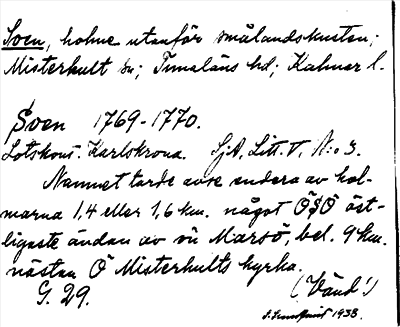 Sven, holme utanför smålandskusten;
Misterhult sn; Tunaläns hd; Kalmar l.
Sven 1769-1770.
Lotskont. Karlskrona. SjA, Litt. V, N:o 3.
Namnet torde avse endera av hol-
marna 1,4 eller 1,6 km. något ÖSÖ öst-
ligaste ändan av ön Marsö, bel. 9 km.
nästan Ö Misterhults kyrka.
G. 29. (Vänd!)
1938.